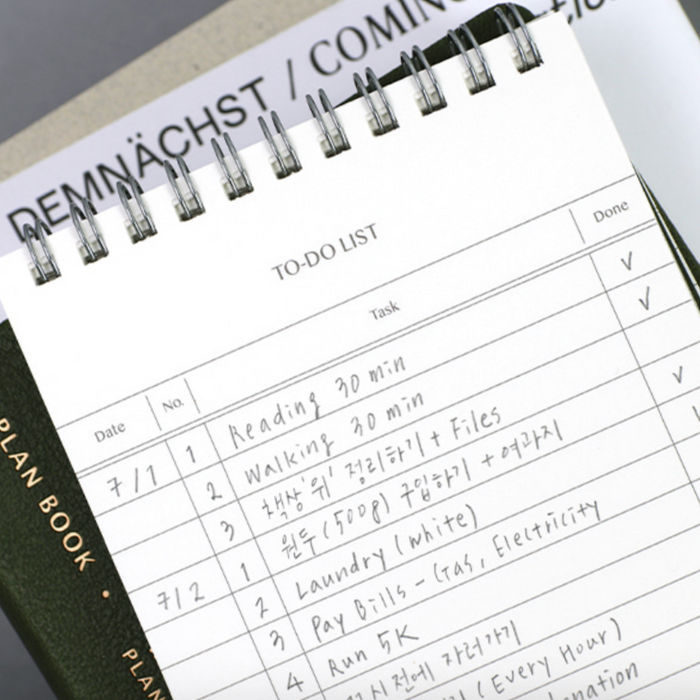 DEMNÄCHST / COMING
TO-DO LIST
Date No. Task Done
7/1 1 Reading 30 min ✓
2 Walking 30 min ✓
3 책상 '위' 정리하기 + Files
7/2 1 원두 (500g) 구입하기 + 여과지 ✓
2 Laundry (white)
3 Pay Bills - Gas, Electricity
4 Run 5K
시 전에 자러가기
(Every Hour)
PLAN BOOK •
PLAN